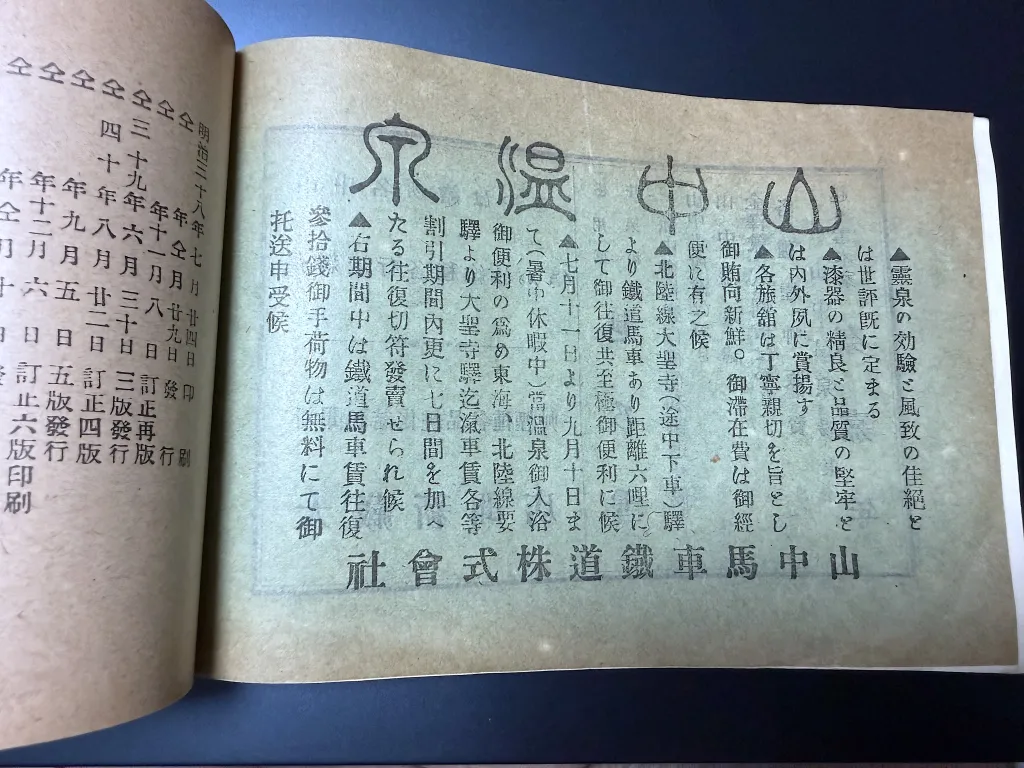 山中溫泉
▲靈泉の効驗と風致の佳絶と
は世評既に定まる
▲漆器の精良と品質の堅牢と
は内外夙に賞揚す
▲各旅舘は丁寧親切を旨とし
御賄向新鮮。御滯在費は御經
便に有之候
▲北陸線大聖寺(途中下車)驛
より鐵道馬車あり距離六哩に
して御往復共至極御便利に候
▲七月十一日より九月十日ま
て(暑中休暇中)當溫泉御入浴
御便利の爲め東海、北陸線要
驛より大聖寺驛迄滊車賃各等
割引期間內更に七日間を加へ
たる往復切符發賣せられ候
▲右期間中は鐵道馬車賃往復
參拾錢御手荷物は無料にて御
托送申受候
山中馬車鐵道株式會社
明治三十八年七月廿四日印刷
仝年仝月廿九日發行
仝年十一月八日訂正再版
仝三十九年六月三十日三版發行
仝四十年八月廿二日訂正四版
仝年九月五日五版發行
仝年十二月六日訂正六版印刷
仝年仝月十日